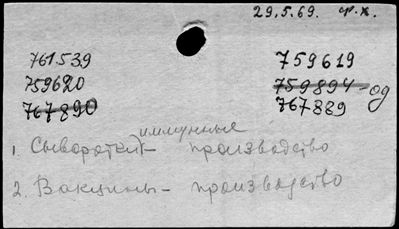 29.5.69. ф.х.
761539 759619
759620 759894-од
767890 767889
иммунные
1. Сыворотки - производство
2. Вакцины - производство